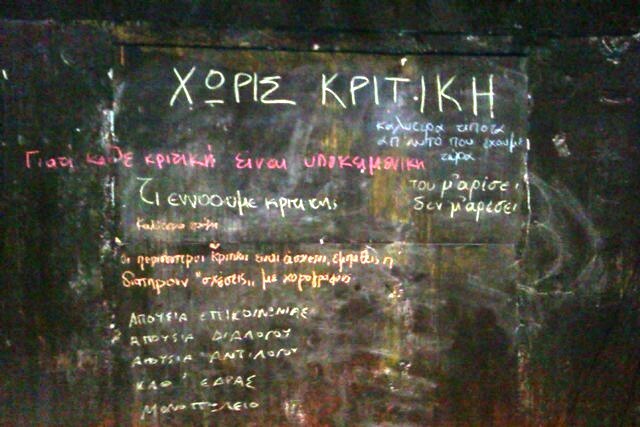 ΧΩΡΙΣ ΚΡΙΤΙΚΗ
καλύτερα τίποτα
απ' αυτό που έχουμε
τώρα
Γιατί κάθε κριτική είναι υποκειμενική
Τι εννοούμε κριτικής
του μ'αρέσει
δεν μ'αρέσει
οι περισσότεροι κριτικοί είναι άσχετοι, εμπαθείς ή
διατηρούν "σχέσεις" με χορογράφους
ΑΠΟΥΣΙΑ ΕΠΙΚΟΙΝΩΝΙΑΣ
ΑΠΟΥΣΙΑ ΔΙΑΛΟΓΟΥ
ΑΠΟΥΣΙΑ ΑΝΤΙΛΟΓΟΥ
ΕΔΡΑΣ
ΜΟΝΟΠΩΛΕΙΟ